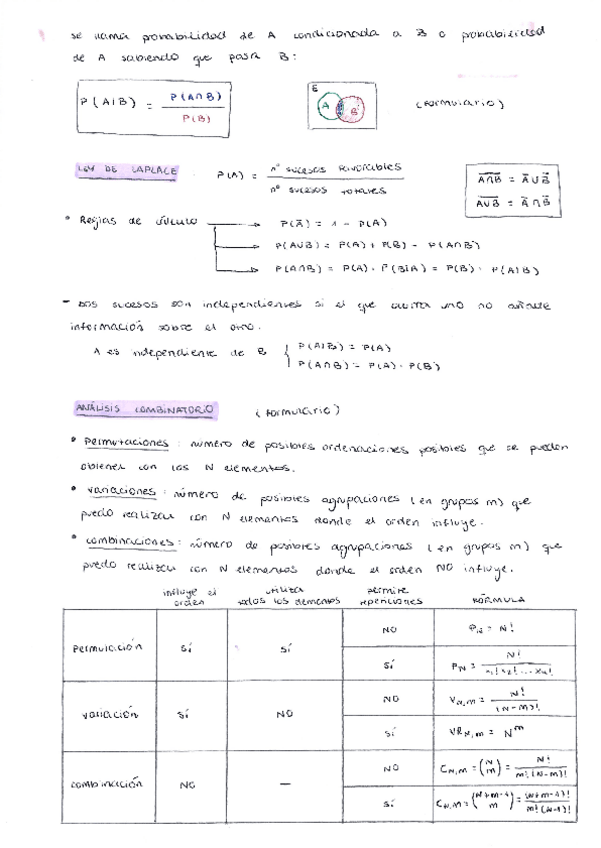 se llama probabilidad de A condicionada a B o probabilidad
de A sabiendo que pasa B:
P(A|B) = P(A∩B) / P(B)
E
A B
(formulario)
LEY DE LAPLACE P(A) = nº sucesos favorables / nº sucesos totales
A̅∩̅B̅ = A̅ ∪ B̅
A̅∪̅B̅ = A̅ ∩ B̅
• Reglas de cálculo → P(A̅) = 1 - P(A)
→ P(A∪B) = P(A) + P(B) - P(A∩B)
→ P(A∩B) = P(A) · P(B|A) = P(B) · P(A|B)
- Dos sucesos son independientes si el que ocurra uno no añade
información sobre el otro.
A es independiente de B { P(A|B) = P(A)
P(A∩B) = P(A) · P(B)
ANÁLISIS COMBINATORIO (formulario)
• permutaciones: número de posibles ordenaciones posibles que se pueden
obtener con los N elementos.
• variaciones: número de posibles agrupaciones (en grupos m) que
puedo realizar con N elementos donde el orden influye.
• combinaciones: número de posibles agrupaciones (en grupos m) que
puedo realizar con N elementos donde el orden NO influye.
influye el orden utiliza todos los elementos permite repeticiones FÓRMULA
permutación sí sí NO P_N = N!
sí P_N = N! / x₁! x₂! ... x_k!
variación sí NO NO V_N,m = N! / (N-m)!
sí VR_N,m = N^m
combinación NO — NO C_N,m = (N m) = N! / m!(N-m)!
sí C_N,m = (N+m-1 m) = (N+m-1)! / m!(N-1)!